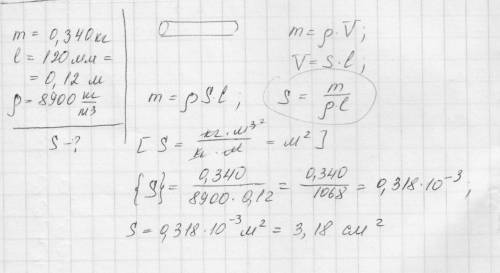 m = 0,340 кг
l = 120 мм =
= 0,12 м
ρ = 8900 кг/м3
S - ?
m = ρ · V;
V = S · l;
m = ρ S · l; S = m/ρ·l
[ S = кг · м³/кг · м = м² ]
{S} = 0,340/8900 · 0,12 = 0,340/1068 = 0,318 · 10⁻³;
S = 0,318 · 10⁻³ м² = 3,18 см²